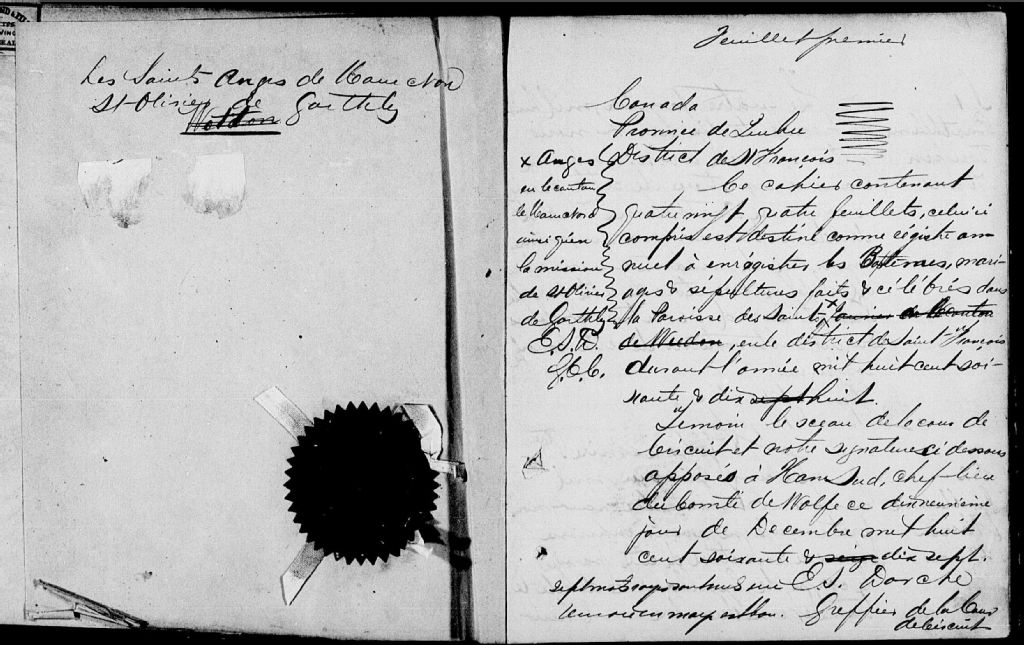 Les Saints Anges de Ham Nord
St Olivier de Garthby
Weedon
Feuillet premier
Canada
Province de Quebec
District de St François
Ce cahier contenant
quatre vingt quatre feuillets, celui ci
compris est destiné comme régistre an-
nuel à enrégistrer les Batêmes, mari-
ages & sépultures faits & célébrés dans
la Paroisse des Saints x
de Weedon, en le district de Saint François
durant l'année mil huit cent soi-
xante & dix sept huit.
x Anges
en le canton
de Ham Nord
ainsi qu'en
la mission
de St Olivier
de Garthby
E. S. D.
G. C. C.
Témoin le sceau de la cour de
Circuit et notre signature ci dessous
apposés à Ham Sud, chef-lieu
du Comté de Wolfe ce dixneuvième
jour de Decembre mil huit
cent soixante & seize dix sept.
sept mots rayés sont nuls un
renvoi en marge est bon.
E. S. Darche
Greffier de la Cour
de Circuit